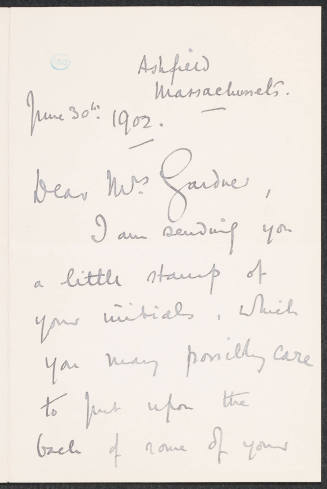 Ashfield
Massachussets.
June 30th. 1902.
Dear Mrs Gardner,
I am sending you
a little stamp of
your initials, which
you may possibly care
to put upon the
back of some of your